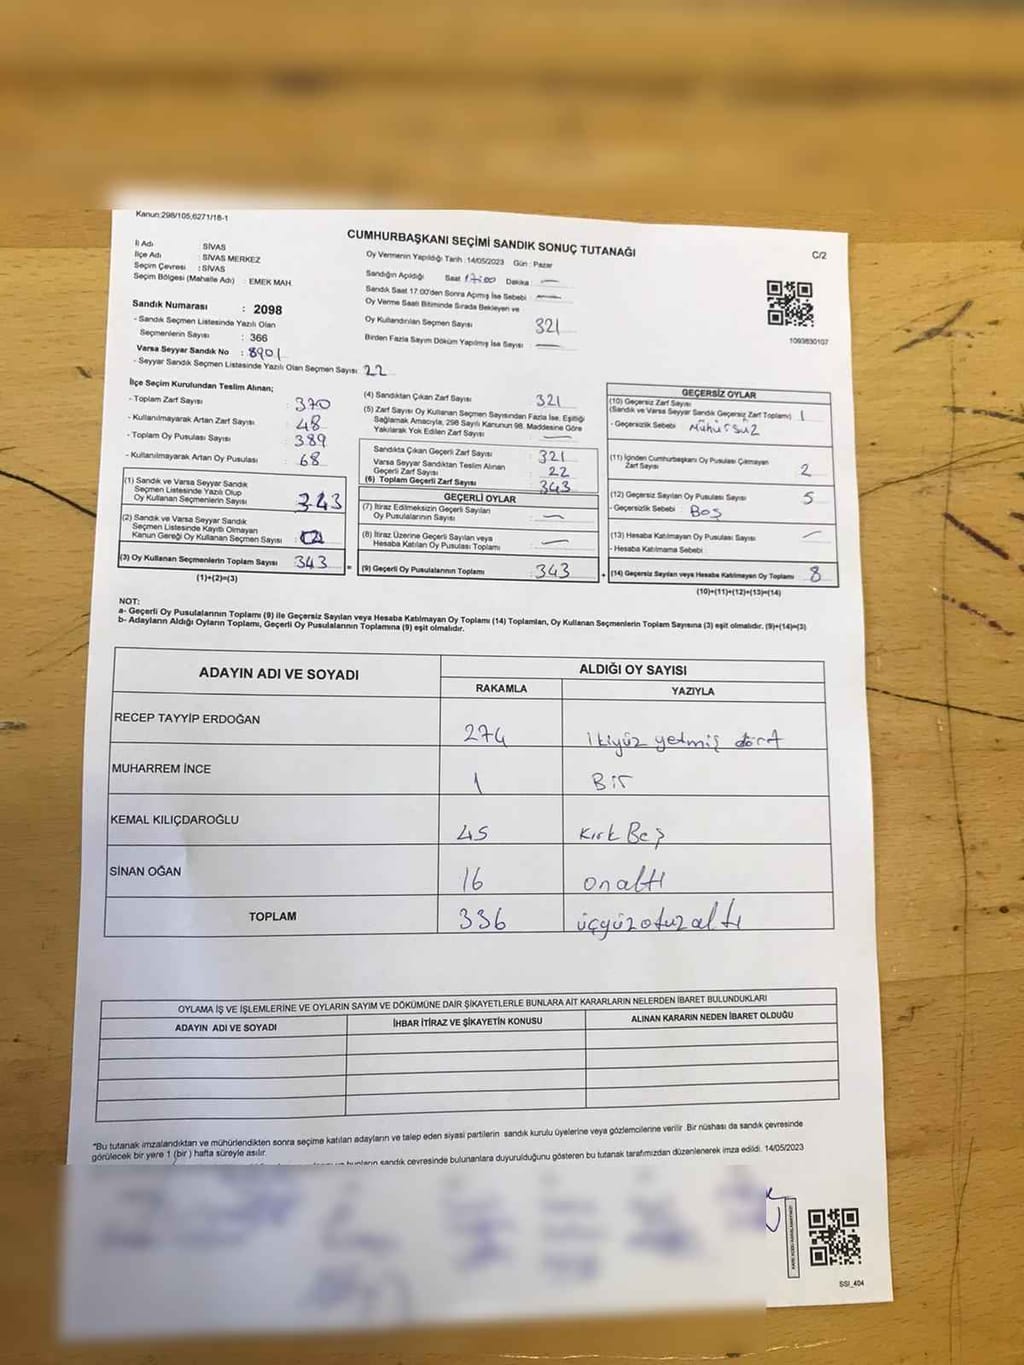 Kanun:298/105,6271/18-1
CUMHURBAŞKANI SEÇİMİ SANDIK SONUÇ TUTANAĞI
C/2
İl Adı : SİVAS
İlçe Adı : SİVAS MERKEZ
Seçim Çevresi : SİVAS
Seçim Bölgesi (Mahalle Adı) : EMEK MAH.
Oy Vermenin Yapıldığı Tarih : 14/05/2023 Gün : Pazar
Sandığın Açıldığı Saat 17:00 Dakika : —
Sandık Saat 17.00'den Sonra Açımış İse Sebebi : —
Oy Verme Saati Bitiminde Sırada Bekleyen ve
Oy Kullandırılan Seçmen Sayısı 321
Birden Fazla Sayım Döküm Yapılmış İse Sayısı : —
1093830107
Sandık Numarası : 2098
- Sandık Seçmen Listesinde Yazılı Olan
Seçmenlerin Sayısı : 366
Varsa Seyyar Sandık No : 8901
- Seyyar Sandık Seçmen Listesinde Yazılı Olan Seçmen Sayısı : 22
İlçe Seçim Kurulundan Teslim Alınan;
- Toplam Zarf Sayısı : 370
- Kullanılmayarak Artan Zarf Sayısı : 48
- Toplam Oy Pusulası Sayısı : 389
- Kullanılmayarak Artan Oy Pusulası : 68
(1) Sandık ve Varsa Seyyar Sandık
Seçmen Listesinde Yazılı Olup
Oy Kullanan Seçmenlerin Sayısı : 343
(2) Sandık ve Varsa Seyyar Sandık
Seçmen Listesinde Kayıtlı Olmayan
Kanun Gereği Oy Kullanan Seçmen Sayısı :
(3) Oy Kullanan Seçmenlerin Toplam Sayısı : 343
(1)+(2)=(3)
(4) Sandıktan Çıkan Zarf Sayısı : 321
(5) Zarf Sayısı Oy Kullanan Seçmen Sayısından Fazla İse, Eşitliği
Sağlamak Amacıyla, 298 Sayılı Kanunun 98. Maddesine Göre
Yakılarak Yok Edilen Zarf Sayısı : —
Sandıkta Çıkan Geçerli Zarf Sayısı : 321
Varsa Seyyar Sandıktan Teslim Alınan
Geçerli Zarf Sayısı : 22
(6) Toplam Geçerli Zarf Sayısı : 343
GEÇERLİ OYLAR
(7) İtiraz Edilmeksizin Geçerli Sayılan
Oy Pusulalarının Sayısı : —
(8) İtiraz Üzerine Geçerli Sayılan veya
Hesaba Katılan Oy Pusulası Toplamı : —
= (9) Geçerli Oy Pusulalarının Toplamı : 343
GEÇERSİZ OYLAR
(10) Geçersiz Zarf Sayısı
(Sandık ve Varsa Seyyar Sandık Geçersiz Zarf Toplamı) 1
- Geçersizlik Sebebi Mühürsüz
(11) İçinden Cumhurbaşkanı Oy Pusulası Çıkmayan
Zarf Sayısı 2
(12) Geçersiz Sayılan Oy Pusulası Sayısı 5
- Geçersizlik Sebebi Boş
(13) Hesaba Katılmayan Oy Pusulası Sayısı —
- Hesaba Katılmama Sebebi
+ (14) Geçersiz Sayılan veya Hesaba Katılmayan Oy Toplamı : 8
(10)+(11)+(12)+(13)=(14)
NOT:
a- Geçerli Oy Pusulalarının Toplamı (9) ile Geçersiz Sayılan veya Hesaba Katılmayan Oy Toplamı (14) Toplamları, Oy Kullanan Seçmenlerin Toplam Sayısına (3) eşit olmalıdır. (9)+(14)=(3)
b- Adayların Aldığı Oyların Toplamı, Geçerli Oy Pusulalarının Toplamına (9) eşit olmalıdır.
ADAYIN ADI VE SOYADI ALDIĞI OY SAYISI
RAKAMLA YAZIYLA
RECEP TAYYİP ERDOĞAN 274 ikiyüz yetmiş dört
MUHARREM İNCE 1 Bir
KEMAL KILIÇDAROĞLU 45 Kırk Beş
SİNAN OĞAN 16 onaltı
TOPLAM 336 üçyüzotuzaltı
OYLAMA İŞ VE İŞLEMLERİNE VE OYLARIN SAYIM VE DÖKÜMÜNE DAİR ŞİKAYETLERLE BUNLARA AİT KARARLARIN NELERDEN İBARET BULUNDUKLARI
ADAYIN ADI VE SOYADI İHBAR İTİRAZ VE ŞİKAYETİN KONUSU ALINAN KARARIN NEDEN İBARET OLDUĞU
"Bu tutanak imzalandıktan ve mühürlendikten sonra seçime katılan adayların ve talep eden siyasi partilerin sandık kurulu üyelerine veya gözlemcilerine verilir. Bir nüshası da sandık çevresinde
görülecek bir yere 1 (bir) hafta süreyle asılır.
bunların sandık çevresinde bulunanlara duyurulduğunu gösteren bu tutanak tarafımızdan düzenlenerek imza edildi. 14/05/2023
SSİ_404